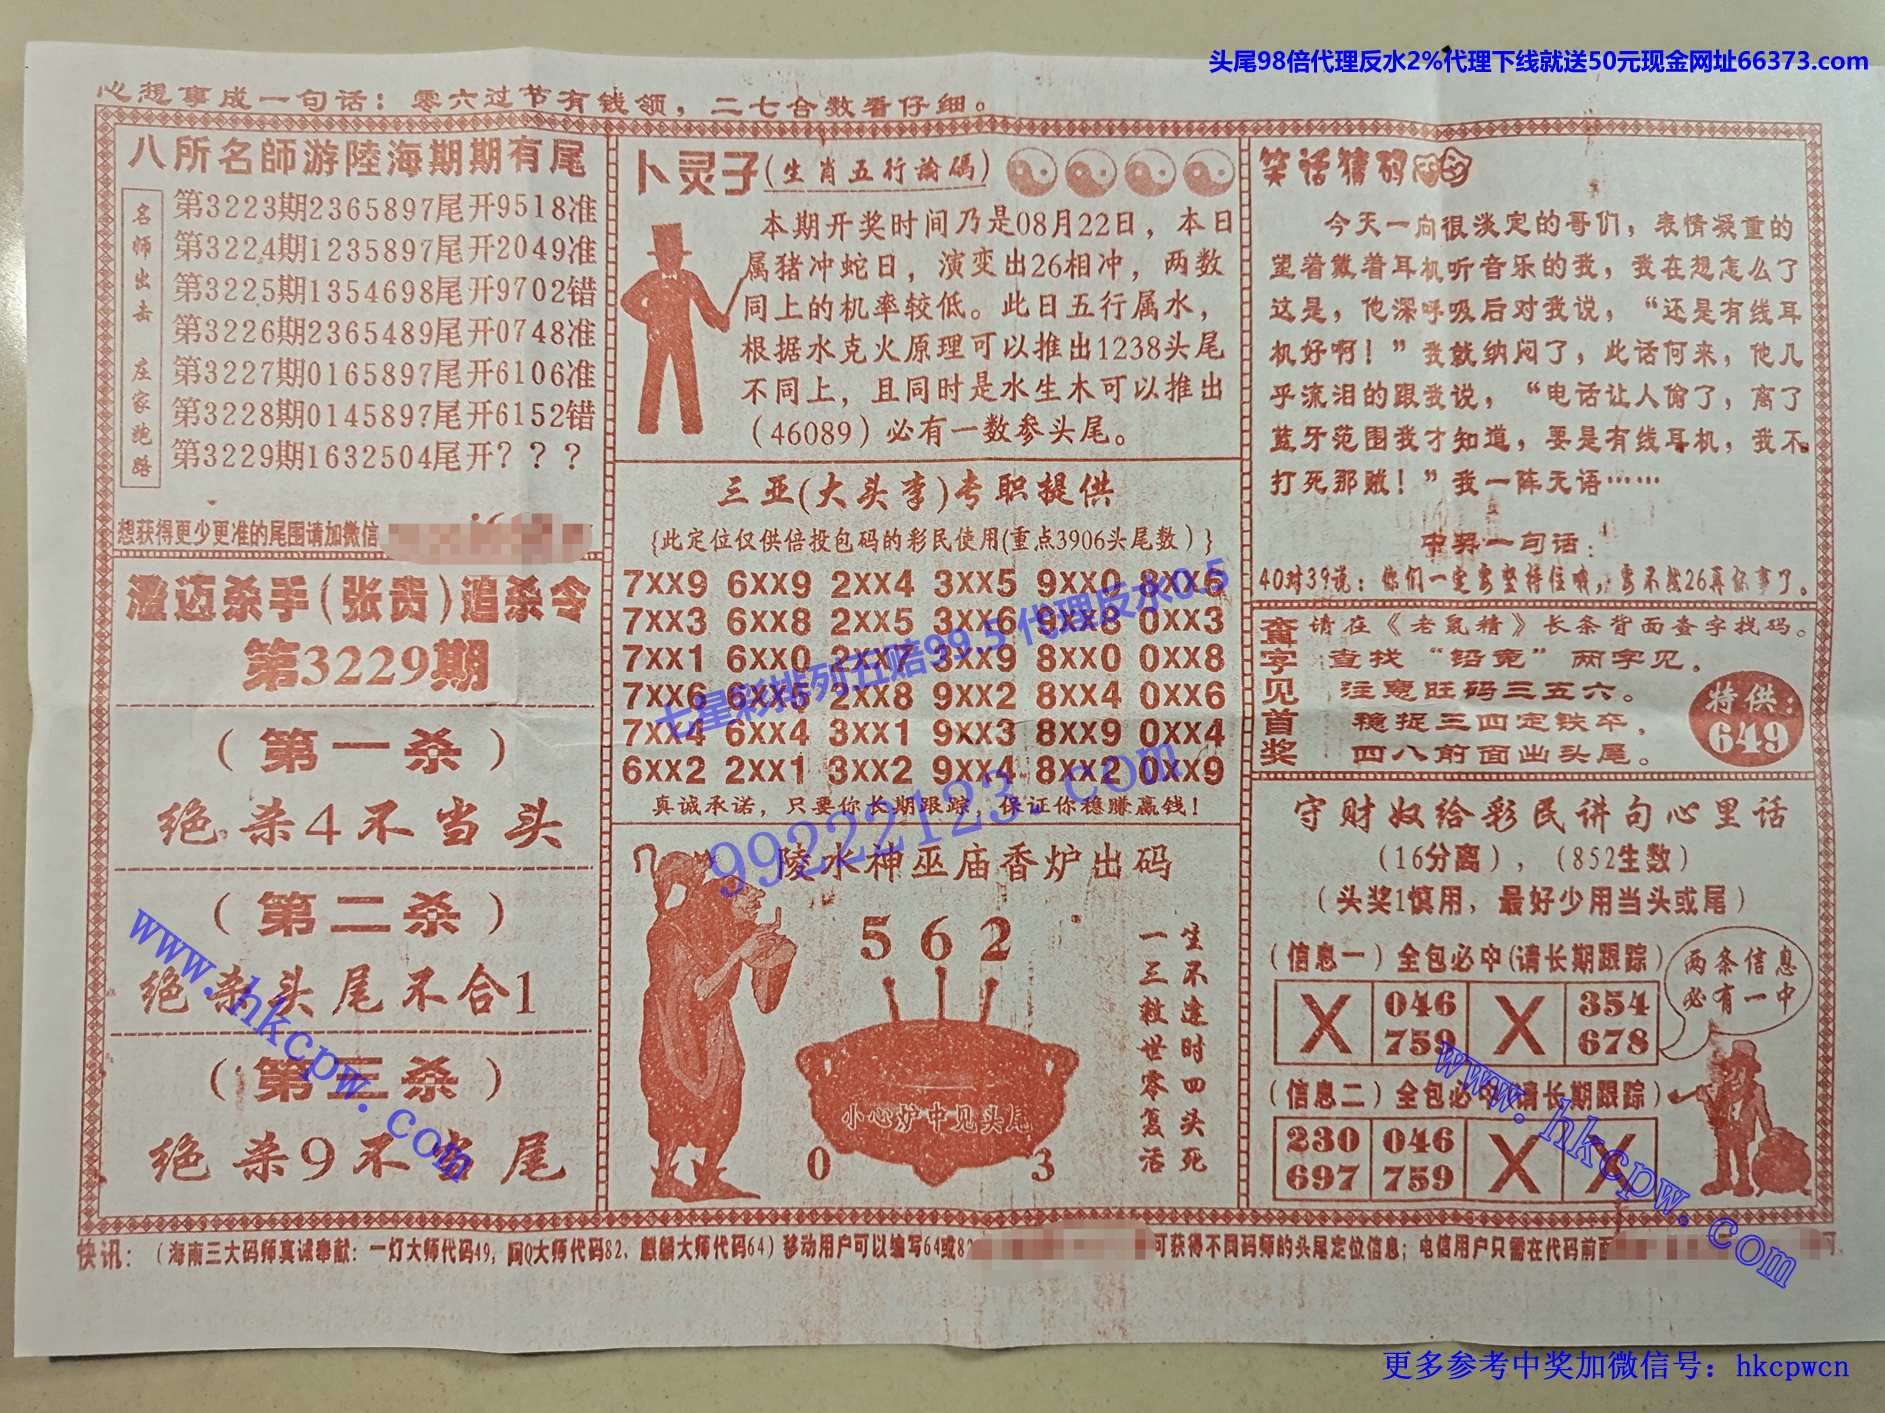 头尾98倍代理反水2%代理下线就送50元现金网址66373.com
心想事成一句话：零六过节有钱领，二七合数看仔细。
八所名師游陸海期期有尾
名师出击 庄家跑路
第3223期2365897尾开9518准
第3224期1235897尾开2049准
第3225期1354698尾开9702错
第3226期2365489尾开0748准
第3227期0165897尾开6106准
第3228期0145897尾开6152错
第3229期1632504尾开？？？
想获得更少更准的尾围请加微信
澄迈杀手(张贵)追杀令
第3229期
（第一杀）
绝杀4不当头
（第二杀）
绝杀头尾不合1
（第三杀）
绝杀9不当尾
卜灵子(生肖五行論碼)
本期开奖时间乃是08月22日，本日
属猪冲蛇日，演变出26相冲，两数
同上的机率较低。此日五行属水，
根据水克火原理可以推出1238头尾
不同上，且同时是水生木可以推出
（46089）必有一数参头尾。
三亚(大头李)专职提供
{此定位仅供倍投包码的彩民使用(重点3906头尾数）}
7XX9 6XX9 2XX4 3XX5 9XX0 8XX6
7XX3 6XX8 2XX5 3XX6 9XX8 0XX3
7XX1 6XX0 2XX7 3XX9 8XX0 0XX8
7XX6 6XX5 2XX8 9XX2 8XX4 0XX6
7XX4 6XX4 3XX1 9XX3 8XX9 0XX4
6XX2 2XX1 3XX2 9XX4 8XX2 0XX9
真诚承诺，只要你长期跟踪，保证你稳赚赢钱！
七星彩排列五赔99.5 代理反水0.5
99222123.com
陵水神巫庙香炉出码
5 6 2
小心炉中见头尾
0 3
生不逢时四头死
一三粒世零复活
笑话猜码
今天一向很淡定的哥们，表情凝重的
望着戴着耳机听音乐的我，我在想怎么了
这是，他深呼吸后对我说，“还是有线耳
机好啊！”我就纳闷了，此话何来，他几
乎流泪的跟我说，“电话让人偷了，离了
蓝牙范围我才知道，要是有线耳机，我不
打死那贼！”我一阵无语……
中奖一句话：
40对39说：你们一定要坚持住哦，要不然26再你事了。
查字见首奖
请在《老鼠精》长条背面查字找码。
查找“铅宽”两字见。
注意旺码三五六。
稳捉三四定铁卒，
四八前面出头尾。
特供：
649
守财奴给彩民讲句心里话
（16分离），（852生数）
（头奖1慎用，最好少用当头或尾）
（信息一）全包必中(请长期跟踪）
X 046 759 X 354 678
两条信息
必有一中
（信息二）全包必中(请长期跟踪）
230 697 046 759 X X
快讯：（海南三大码师真诚奉献：一灯大师代码49，阿Q大师代码82，麒麟大师代码64）移动用户可以编写64或82
可获得不同码师的头尾定位信息；电信用户只需在代码前面
www.hkcpw.com
www.hkcpw.com
更多参考中奖加微信号：hkcpwcn